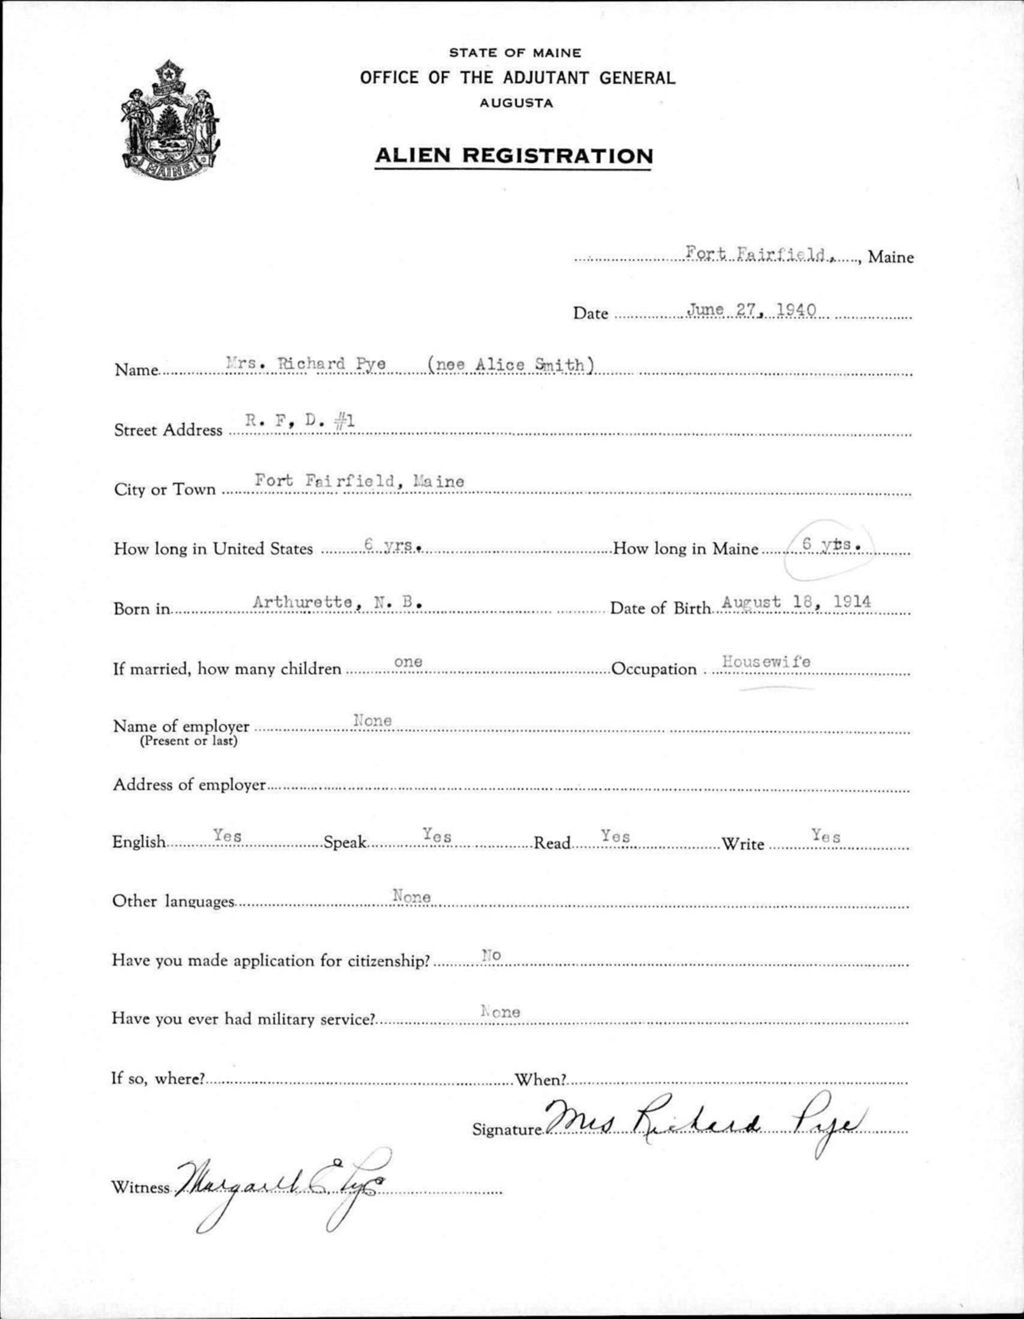 STATE OF MAINE
OFFICE OF THE ADJUTANT GENERAL
AUGUSTA
ALIEN REGISTRATION
MAINE
Fort Fairfield, , Maine
Date June 27, 1940
Name Mrs. Richard Pye (nee Alice Smith)
Street Address R. F, D. #1
City or Town Fort Fairfield, Maine
How long in United States 6 yrs. How long in Maine 6 yrs.
Born in Arthurette, N. B. Date of Birth August 18, 1914
If married, how many children one Occupation Housewife
Name of employer None
(Present or last)
Address of employer
English Yes Speak Yes Read Yes Write Yes
Other languages None
Have you made application for citizenship? No
Have you ever had military service? None
If so, where? When?
Signature Mrs Richard Pye
Witness Margaret E Pye